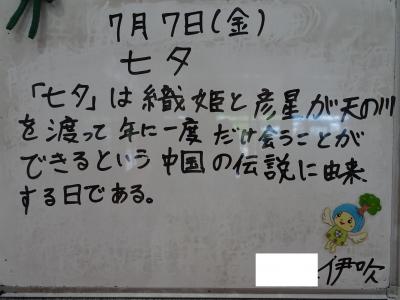 7月7日(金)
七夕
「七夕」は織姫と彦星が天の川
を渡って年に一度だけ会うことが
できるという中国の伝説に由来
する日である。
伊吹